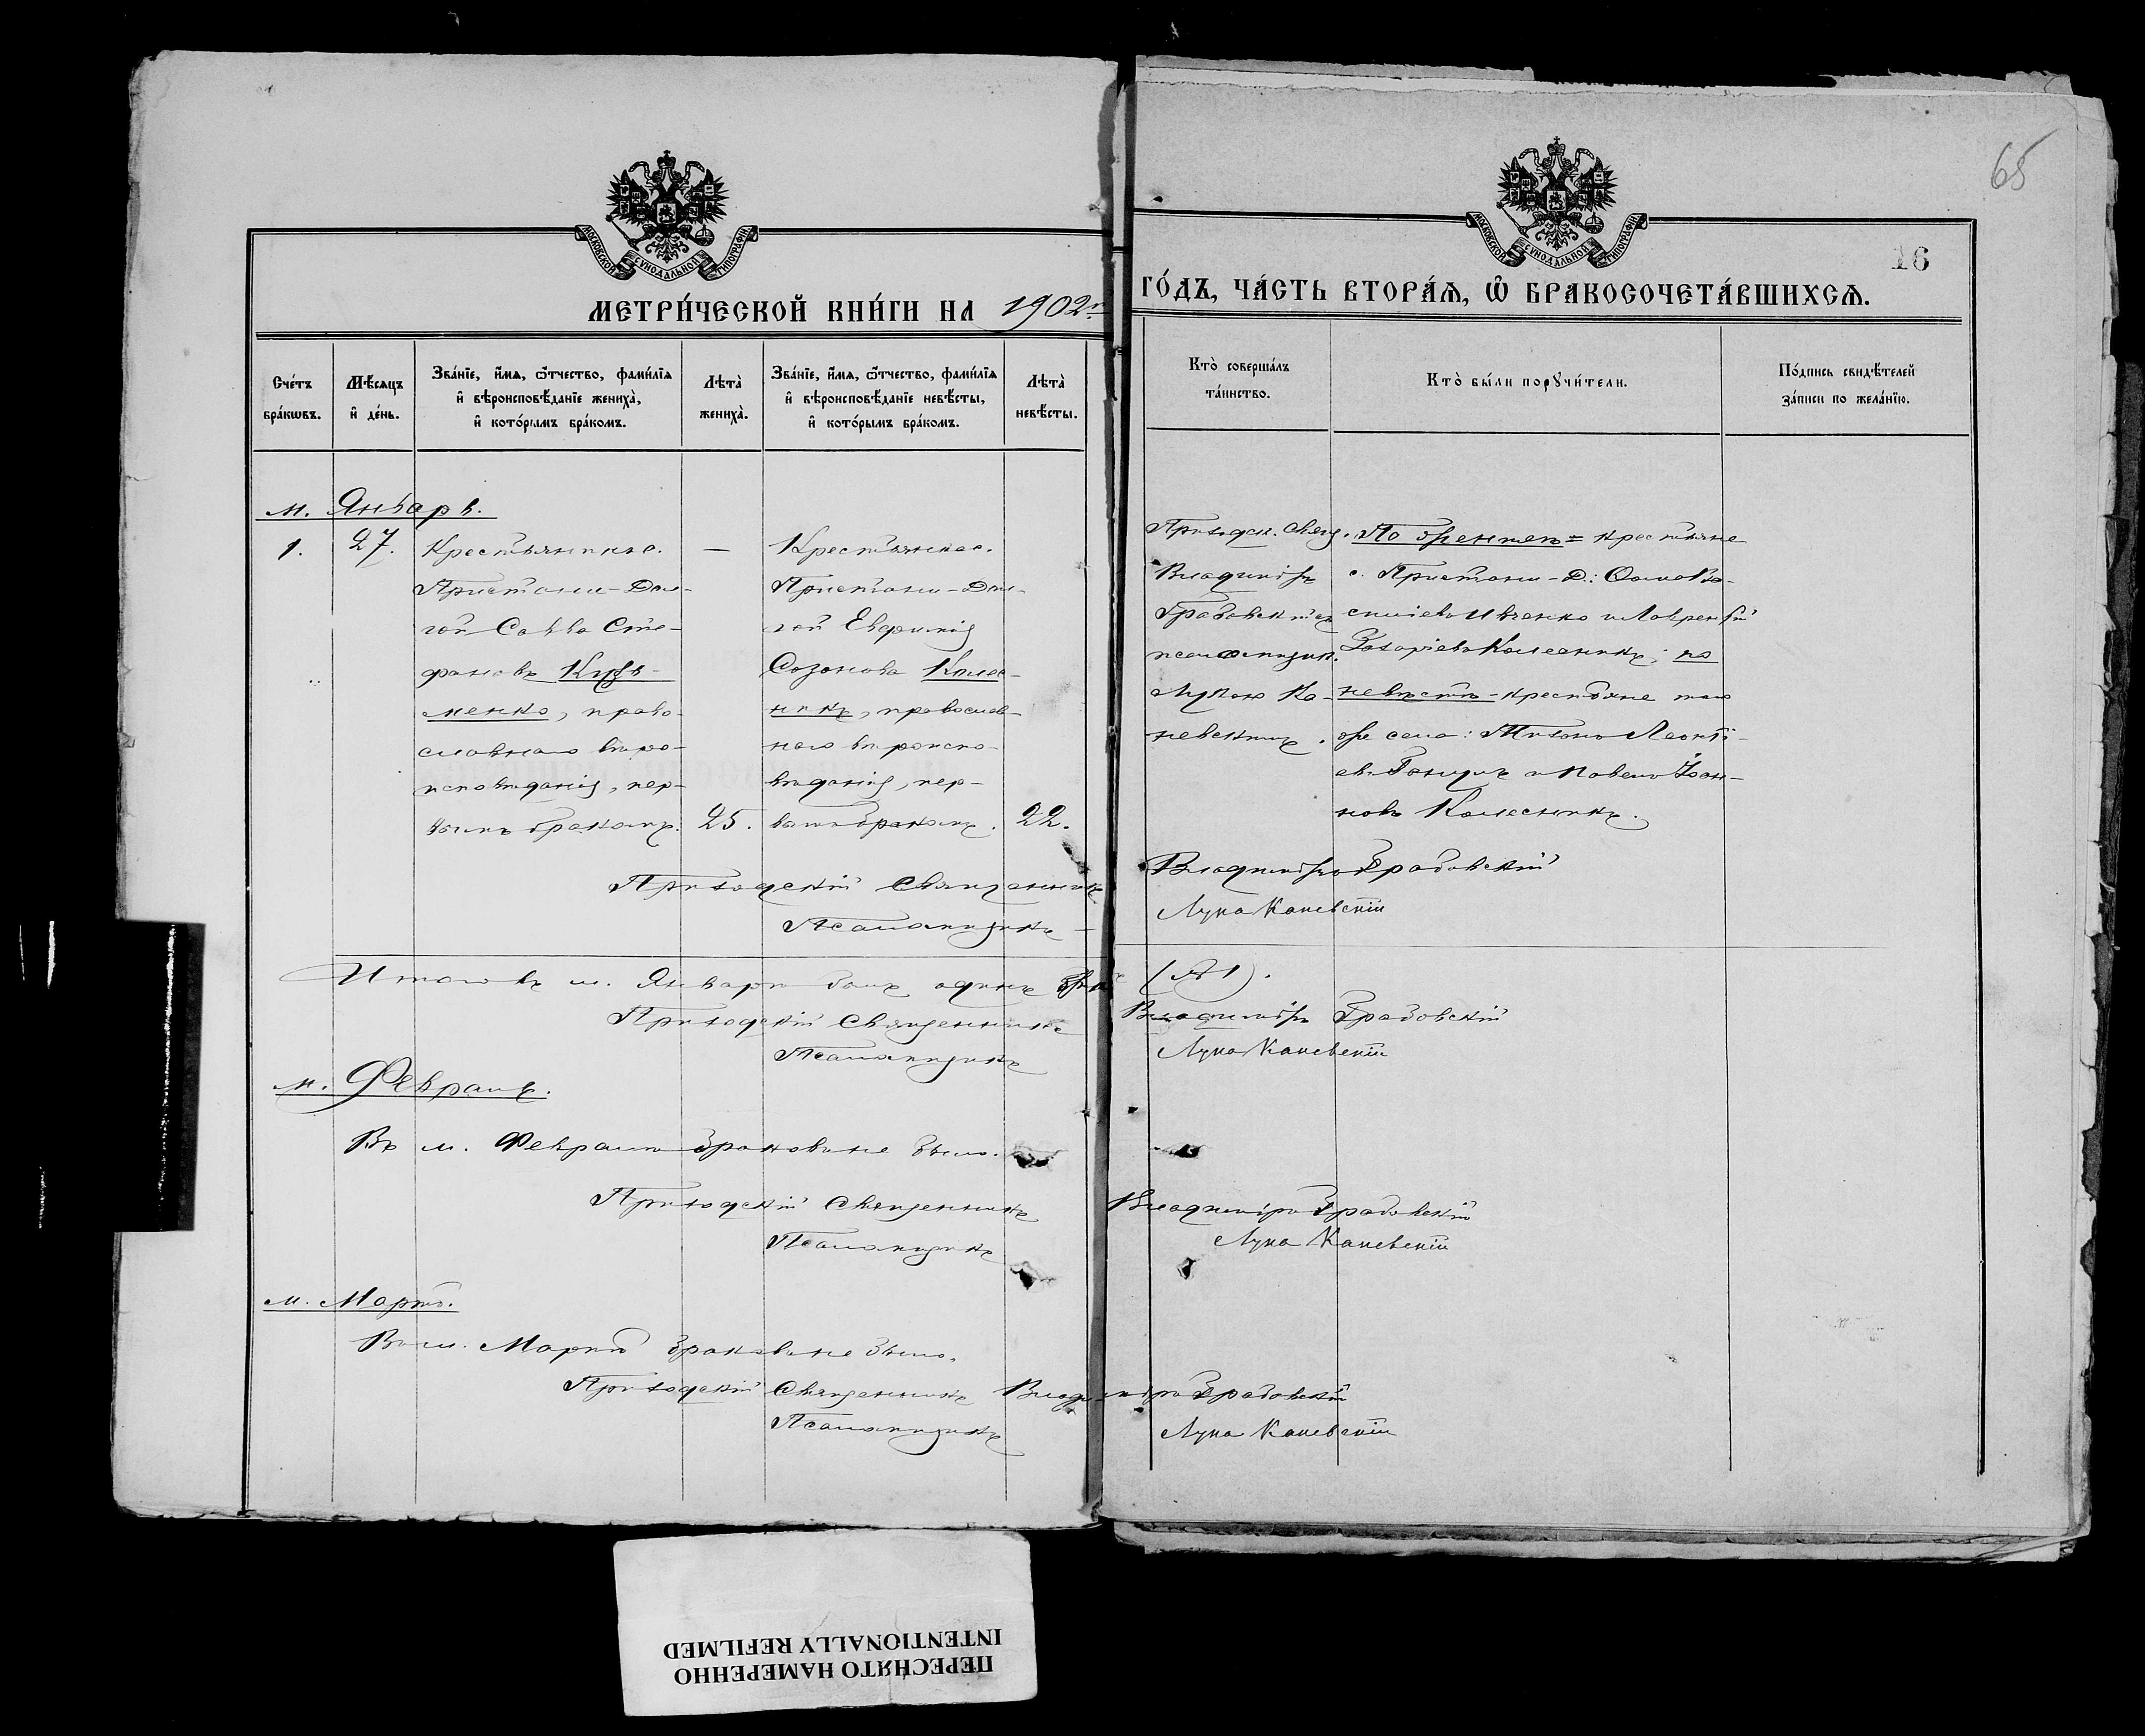 65
16
МОСКОВСКОЙ СѴНОДАЛЬНОЙ ТИПОГРАФІИ
МОСКОВСКОЙ СѴНОДАЛЬНОЙ ТИПОГРАФІИ
МЕТРИ́ЧЕСКОЙ КНИ́ГИ НА 1902 г. ГО́ДЪ, ЧА́СТЬ ВТОРА́Ѧ, Ѽ БРАКОСОЧЕТА́ВШИХСѦ.
Сче́тъ бра́кѡвъ.
Мѣ́сѧцъ и҆ де́нь.
Зва́нїе, и҆́мѧ, ѻ҆́тчество, фами́лїѧ и҆ вѣроисповѣ́данїе жениха̀, и҆ кото́рымъ бра́комъ.
Лѣта̀ жениха̀.
Зва́нїе, и҆́мѧ, ѻ҆́тчество, фами́лїѧ и҆ вѣроисповѣ́данїе невѣ́сты, и҆ кото́рымъ бра́комъ.
Лѣта̀ невѣ́сты.
Кто̀ соверша́лъ та́инство.
Кто̀ бы́ли порꙋчи́тели.
По́дпись свидѣ́телей за́писи по жела́нїю.
м. Январь.
1.
27.
Крестьянинъ с.
Пристани-Дол-
гой Савва Сте-
фановъ Кузь-
менко, право-
славнаго вѣро-
исповѣданія, пер-
вымъ бракомъ.
25.
Крестьянка с.
Пристани-Дол-
гой Евфимія
Созонова Колес-
никъ, православ-
наго вѣроиспо-
вѣданія, пер-
вымъ бракомъ.
22.
Приходск. Свящ.
Владиміръ
Грабовскій съ
псаломщик.
Лукою Ка-
невскимъ.
По женихѣ = крестьяне
с. Пристани-Д.: Ѳома Ва-
силіевъ Ивченко и Лаврентій
Захаріевъ Колесникъ; по
невѣстѣ - крестьяне того
же села: Тихонъ Леонті-
евъ и Павелъ Іоан-
новъ Колесникъ.
Приходскій Священникъ Владиміръ Грабовскій
Псаломщикъ Лука Каневскій
Итого въ м. Январѣ былъ одинъ бракъ (№ 1).
Приходскій Священникъ Владиміръ Грабовскій
Псаломщикъ Лука Каневскій
м. Февраль.
Въ м. Февралѣ браковъ не было.
Приходскій Священникъ Владиміръ Грабовскій
Псаломщикъ Лука Каневскій
м. Мартъ.
Въ м. Мартѣ браковъ не было.
Приходскій Священникъ Владиміръ Грабовскій
Псаломщикъ Лука Каневскій
ПЕРЕСНЯТО НАМЕРЕННО
INTENTIONALLY REFILMED